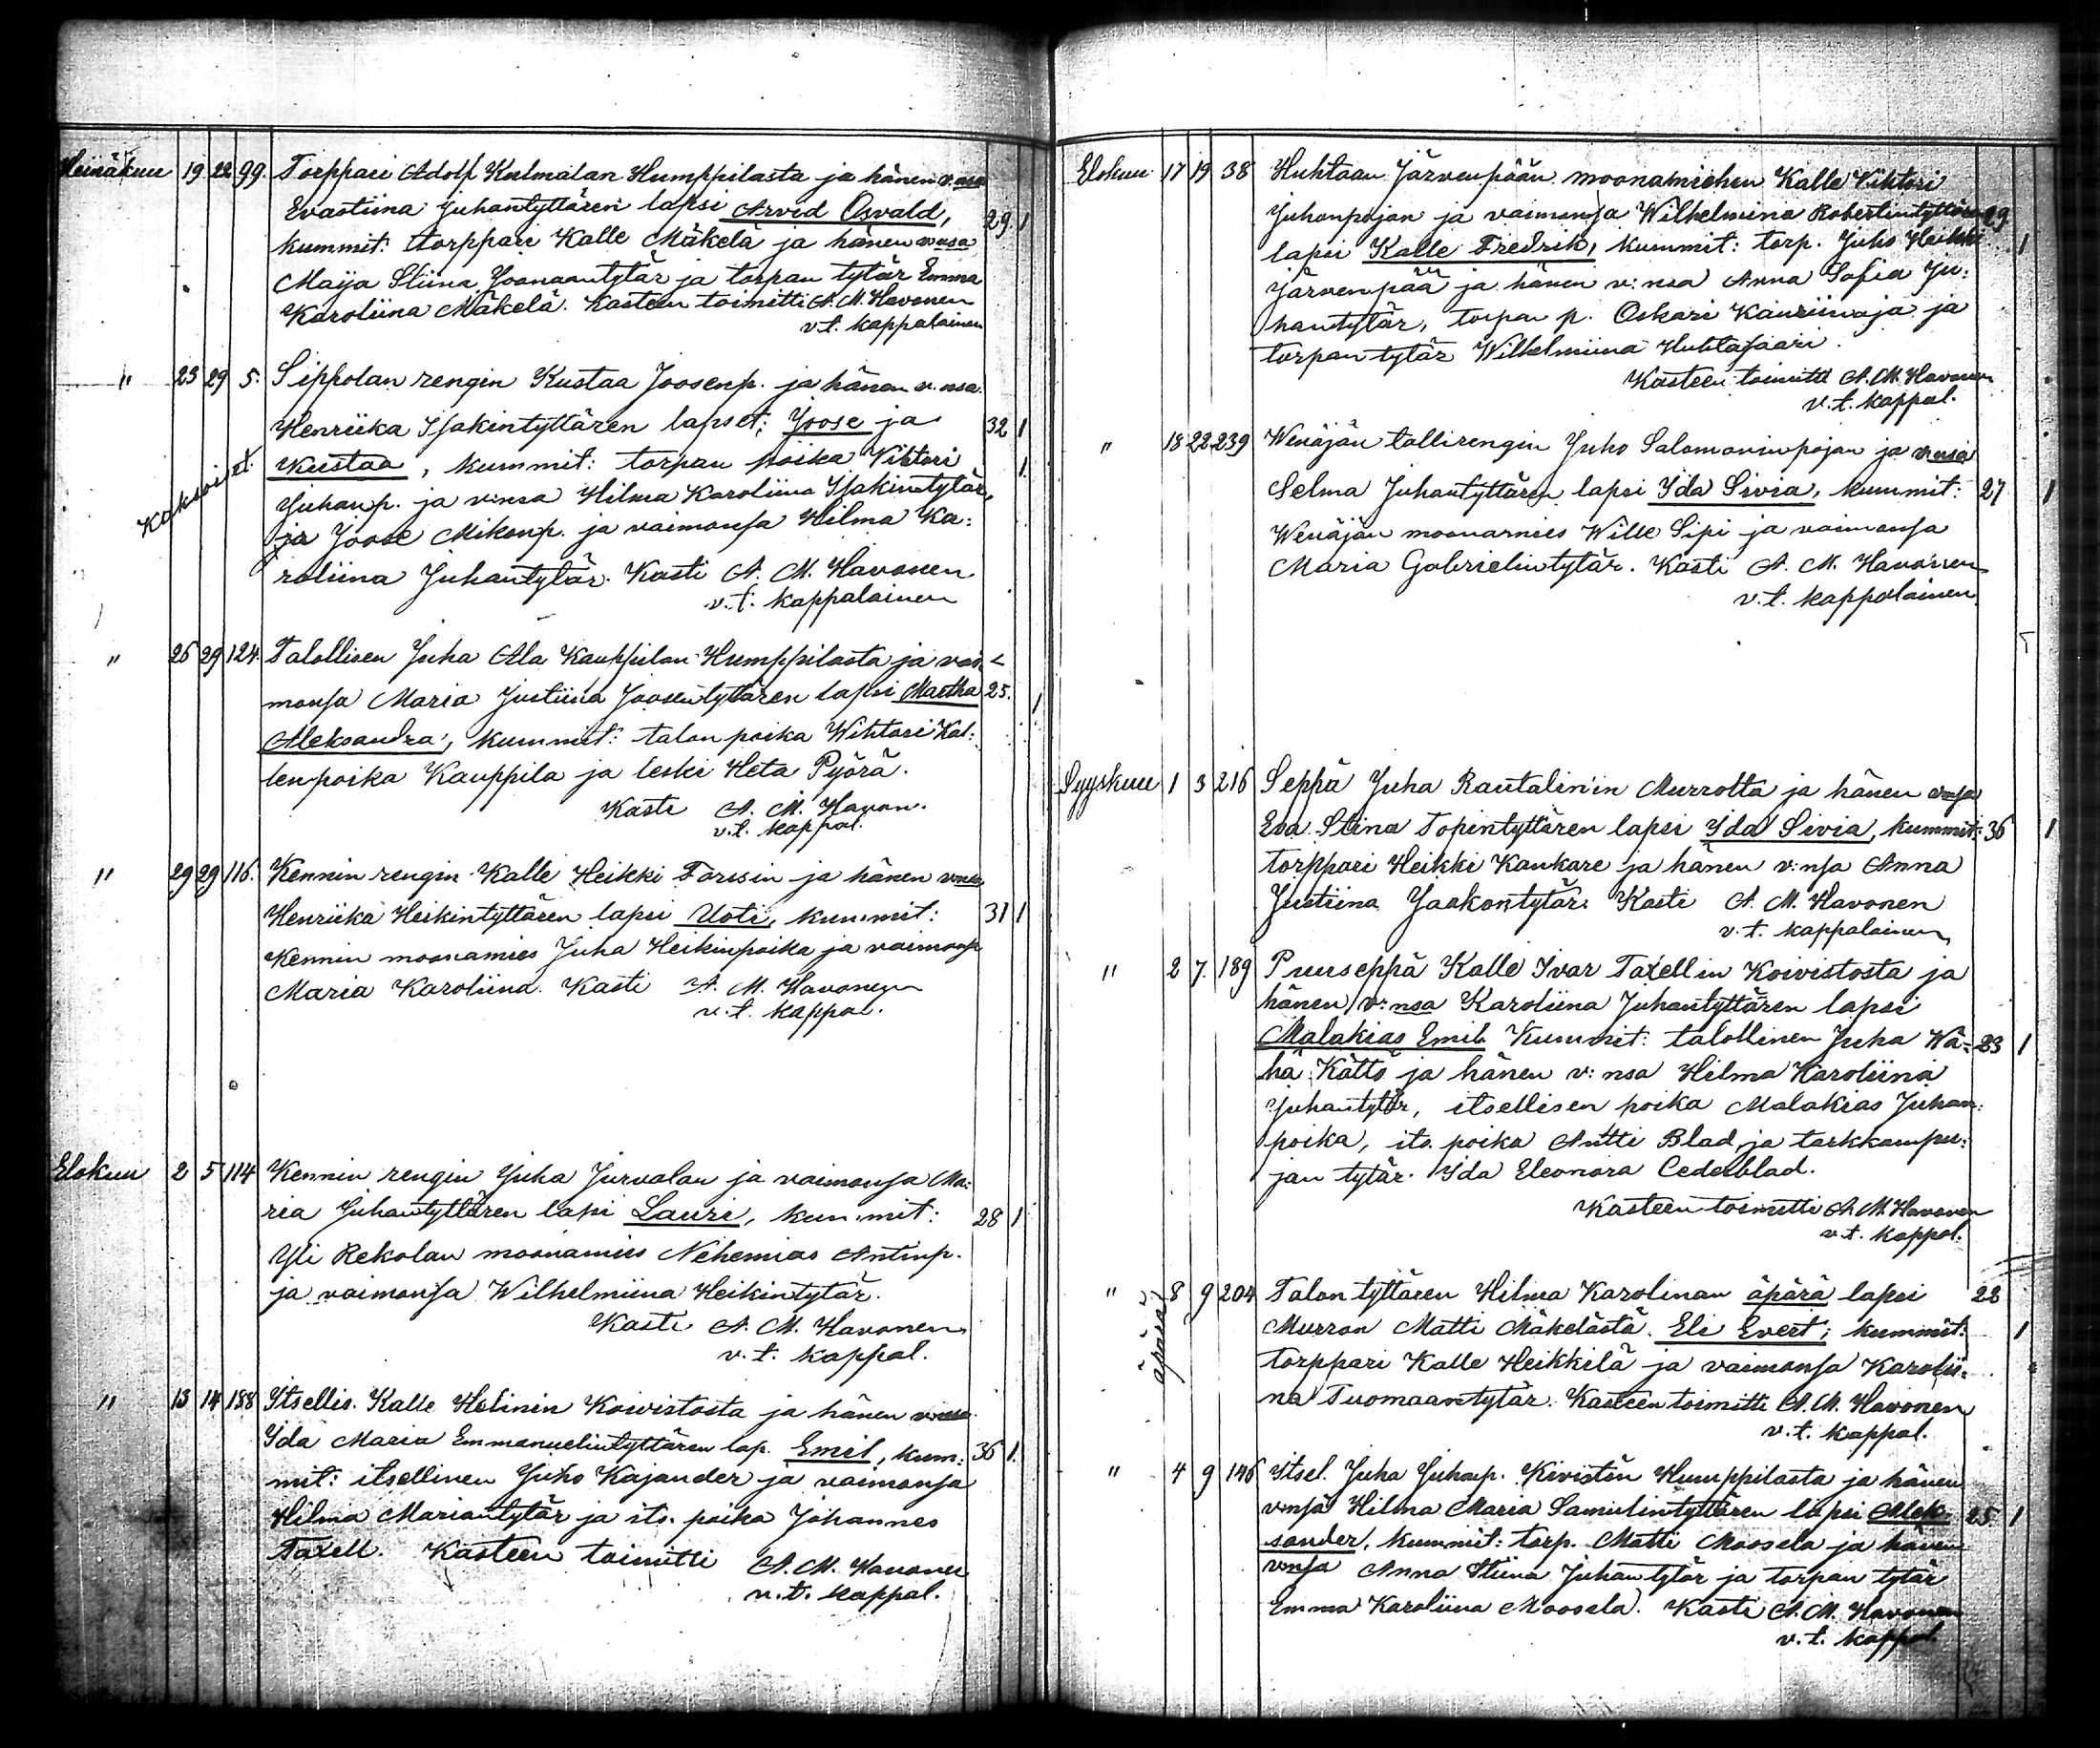 Heinäkuu 19 22 99. Torppari Adolf Kulmalan Humppilasta ja hänen v:nsa
Evastiina Juhantyttären lapsi Arvid Osvald, 29. 1
kummit: torppari Kalle Mäkelä ja hänen v:nsa
Maija Stiina Joonaantytär ja torpan tytär Emma
Karoliina Mäkelä. Kasteen toimitti A. M. Havonen
v.t. kappalainen
" 23 29 5. Sippolan rengin Kustaa Joosenp. ja hänen v:nsa
Henriika Isakintyttären lapset: Joose ja 32 1
Kaksoiset. Kustaa, kummit: torpan poika Vihtori 1
Juhanp. ja v:nsa Hilma Karoliina Isakintytär,
ja Joose Mikonp. ja vaimonsa Hilma Ka:
roliina Juhantytär. Kasti A. M. Havonen
v.t. kappalainen
" 26 29 124 Talollisen Juha Ala Kauppilan Humppilasta ja vai:
monsa Maria Justiina Joosentyttären lapsi Martha 25. 1
Aleksandra, kummit: talon poika Wihtori Kal:
lenpoika Kauppila ja leski Heta Pyörä.
Kasti A. M. Havon.
v.t. kappal.
" 29 29 116. Kennin rengin Kalle Heikki Forssin ja hänen v:nsa
Henriika Heikintyttären lapsi Uoti, kummit: 31 1
Kennin moonamies Juha Heikinpoika ja vaimonsa
Maria Karoliina. Kasti A. M. Havonen
v.t. kappal.
Elokuu 2 5 114 Kennin rengin Juha Jurvalan ja vaimonsa Ma:
ria Juhantyttären lapsi Lauri, kummit: 28 1
Yli Rekolan moonamies Nehemias Antinp.
ja vaimonsa Wilhelmiina Heikintytär.
Kasti A. M. Havonen
v.t. kappal.
" 13 14 188 Itsellis. Kalle Helinin Koivistosta ja hänen v:nsa
Ida Maria Emmanuelintyttären lap. Emil, kum: 36 1.
mit: itsellinen Juho Kajander ja vaimonsa
Hilma Mariantytär ja its. poika Johannes
Taxell. Kasteen toimitti A. M. Havonen
v.t. kappal.
Elokuu 17 19 38 Huhtaan Järvenpään moonamiehen Kalle Vihtori
Juhonpojan ja vaimonsa Wilhelmina Robertintyttären 29
lapsi Kalle Fredrik, kummit: torp. Juho Heikki 1
Järvenpää ja hänen v:nsa Anna Sofia Ju:
hantytär, torpan p. Oskari Kauriinoja ja
torpan tytär Wilhelmiina Huhtasaari.
Kasteen toimitti A. M. Havonen
v.t. kappal.
" 18 22 239 Wenäjän tallirengin Juho Salomoninpojan ja v:nsa
Selma Juhantyttären lapsi Ida Sivia, kummit: 27 1
Wenäjän moonamies Wille Sipi ja vaimonsa
Maria Gabrielintytär. Kasti A. M. Havonen
v.t. kappalainen
Syyskuu 1 3 216 Seppä Juha Rautalin'in Murrolta ja hänen v:nsa
Eva Stina Topintyttären lapsi Ida Sivia, kummit: 36 1
torppari Heikki Kankare ja hänen v:nsa Anna
Justiina Jaakontytär. Kasti A. M. Havonen
v.t. kappalainen
" 2 7. 189 Puuseppä Kalle Ivar Taxellin Koivistosta ja
hänen v:nsa Karoliina Juhantyttären lapsi
Malakias Emil. Kummit: talollinen Juha Wä: 23 1
hä Kättö ja hänen v:nsa Hilma Karoliina
Juhantytär, itsellisen poika Malakias Juhan:
poika, its. poika Antti Blad ja tarkkampu:
jan tytär Ida Eleonora Cederblad.
Kasteen toimitti A. M. Havonen
v.t. kappal.
" äpärä 8 9 204 Talon tyttären Hilma Karolinan äpärä lapsi 22
Murron Matti Mäkelästä. Eli Evert; kummit: 1
torppari Kalle Heikkilä ja vaimonsa Karolii:
na Tuomaantytär. Kasteen toimitti A. M. Havonen
v.t. kappal.
" 4 9 146 Itsel. Juha Juhanp. Kivistön Humppilasta ja hänen
v:nsa Hilma Maria Samulintyttären lapsi Alek: 25 1
sander, kummit: torp. Matti Moosela ja hänen
v:nsa Anna Stiina Juhantytär ja torpan tytär
Emma Karoliina Moosela. Kasti A. M. Havonen
v.t. kappal.